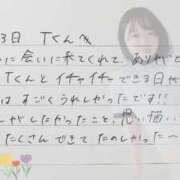 3日 Tくんへ
に会いに来てくれて、ありがと
Tくんとイチャイチャできる3日や
はすごくうれしかったです!!
しがしたかったこと、思い
たくさんできてたのしかった〜